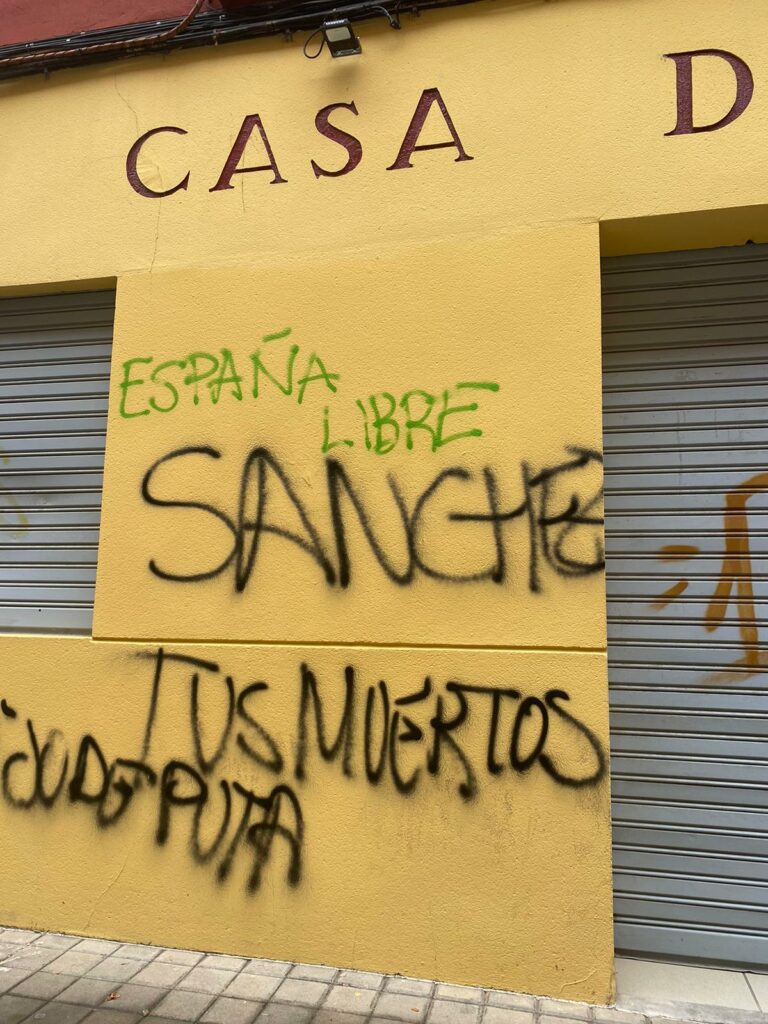 CASA D
ESPAÑA
LIBRE
SANCHEZ
TUS MUERTOS
IJO DE PUTA